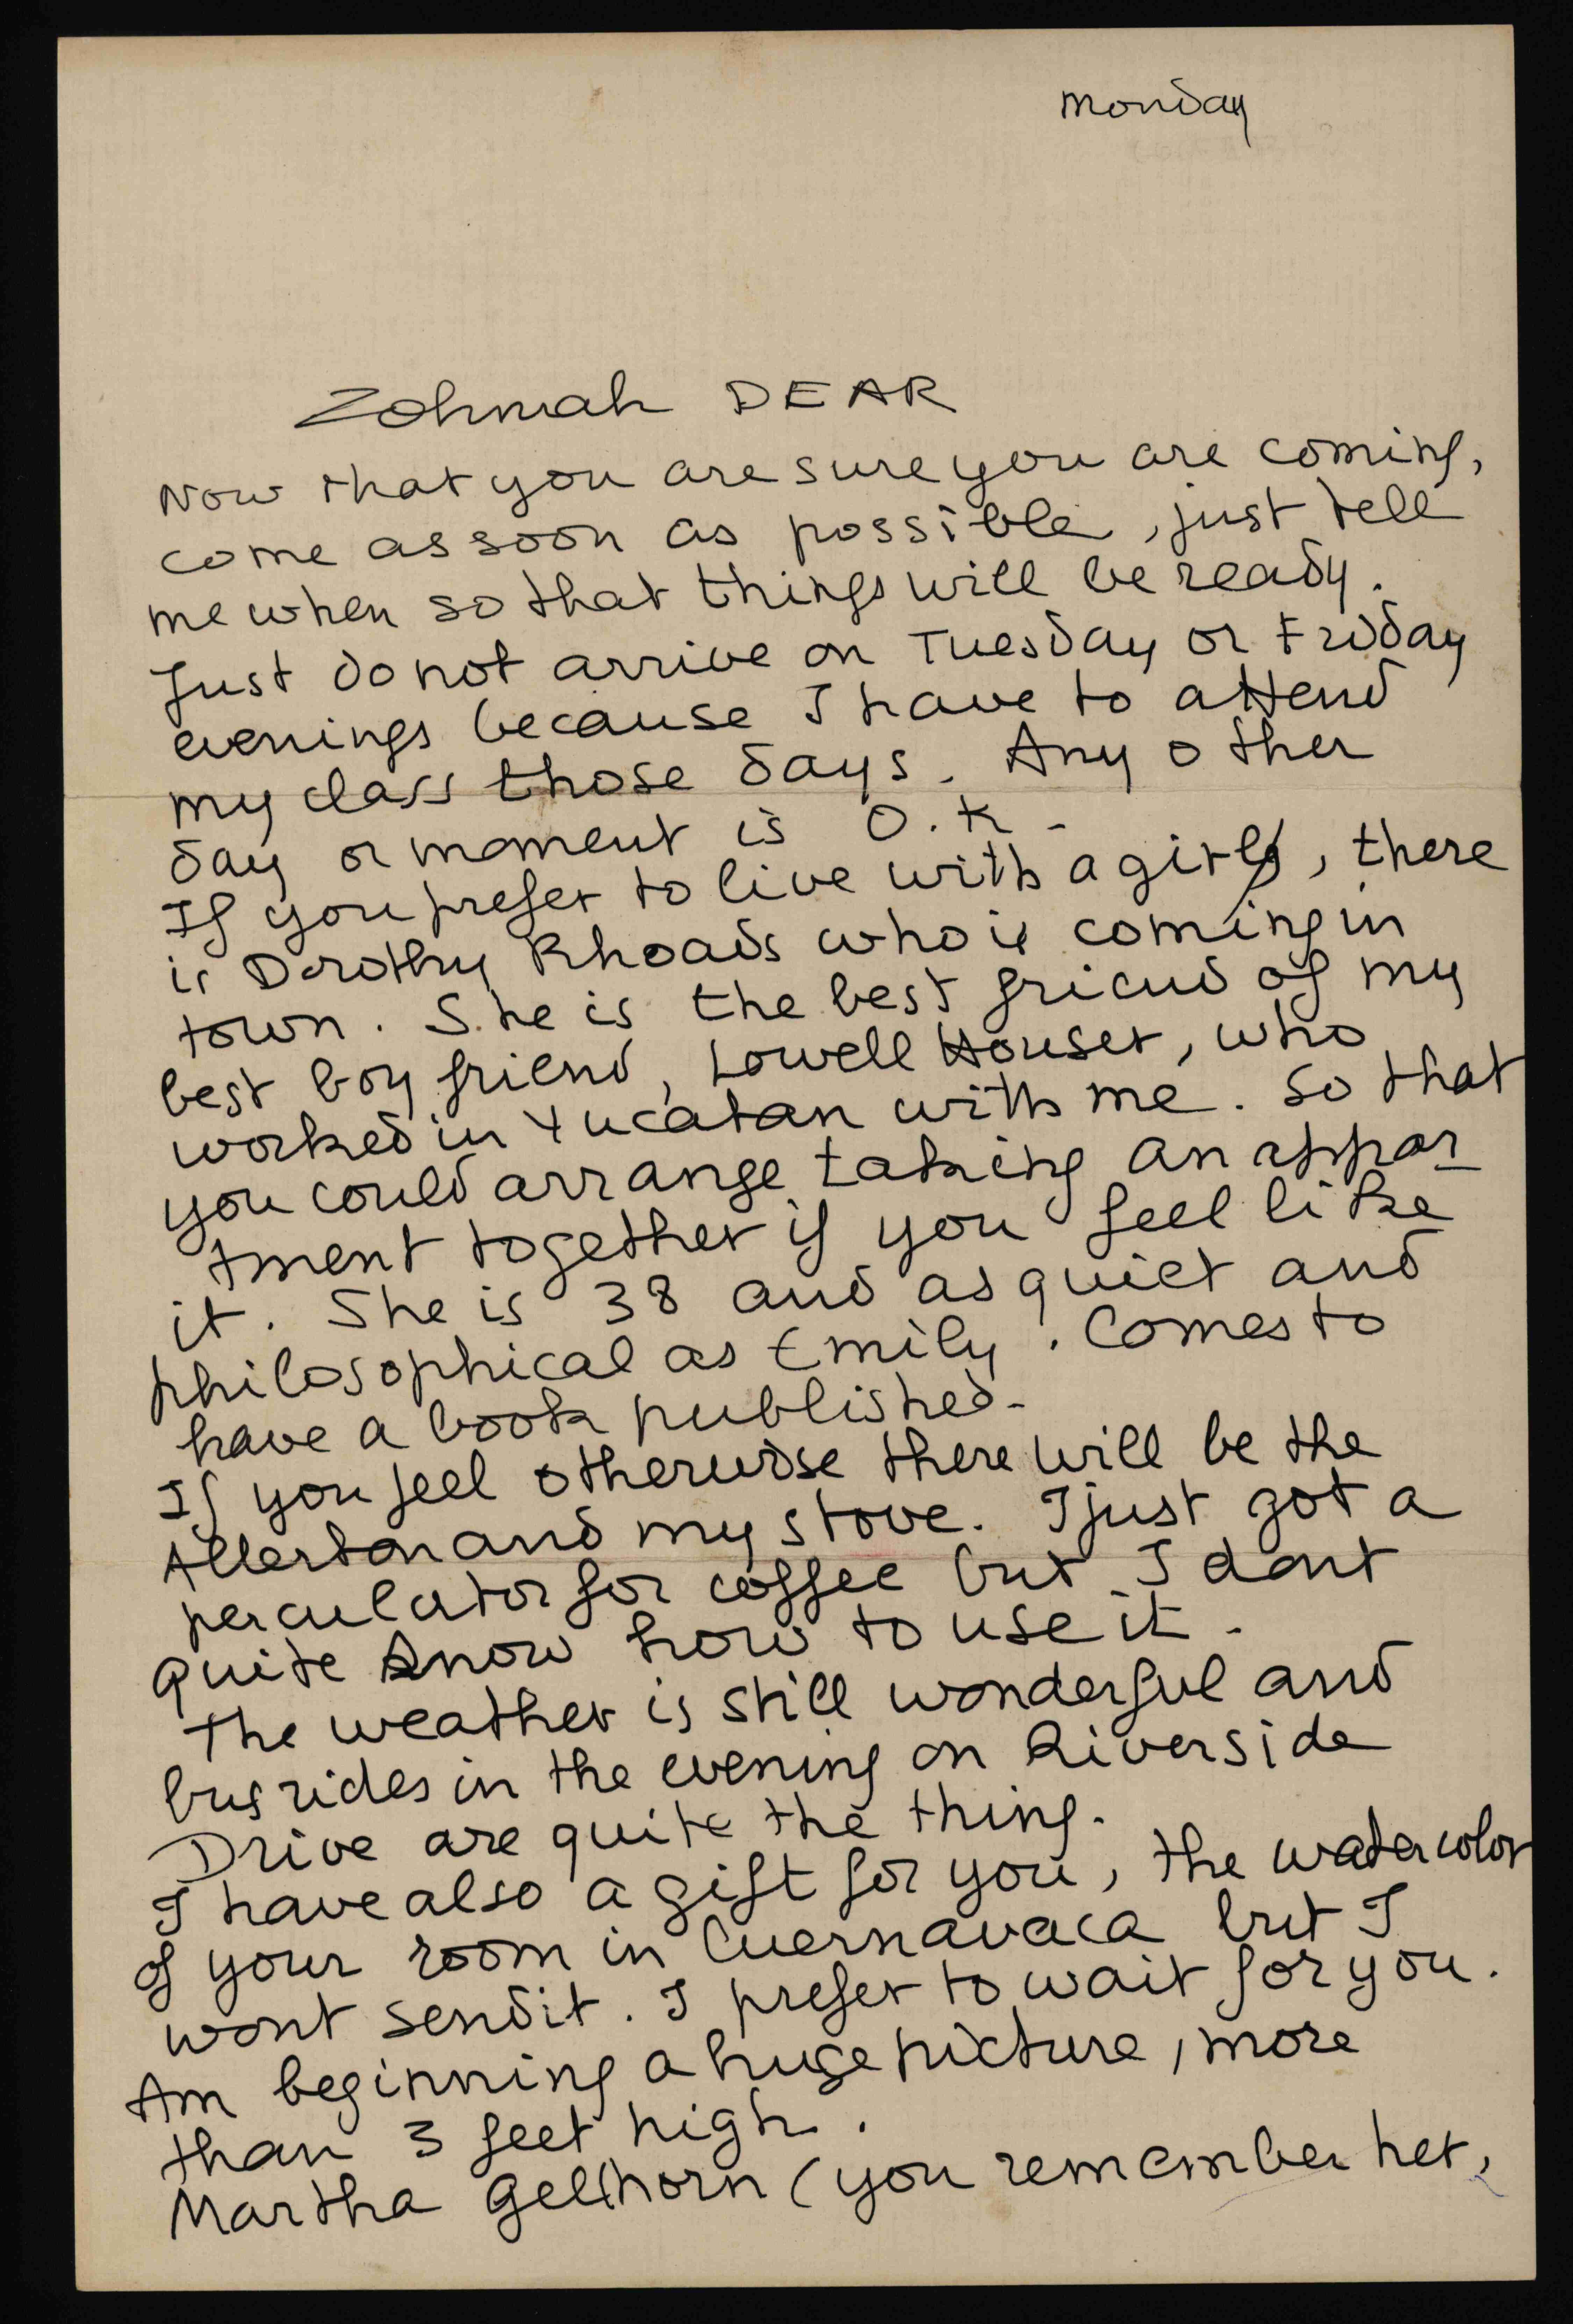 monday
Zohmah DEAR
Now that you are sure you are coming,
come as soon as possible, just tell
me when so that things will be ready.
Just do not arrive on Tuesday or Friday
evenings because I have to attend
my class those days. Any other
day or moment is O.K.
If you prefer to live with a girl, there
is Dorothy Rhoads who is coming in
town. She is the best friend of my
best boy friend, Lowell Houser, who
worked in Yucatan with me. So that
you could arrange taking an appar
tment together if you feel like
it. She is 38 and as quiet and
philosophical as Emily. Comes to
have a book published.
If you feel otherwise there will be the
Allerton and my stove. I just got a
perculator for coffee but I dont
quite know how to use it.
The weather is still wonderful and
bus rides in the evening on Riverside
Drive are quite the thing.
I have also a gift for you, the watercolor
of your room in Cuernavaca but I
wont send it. I prefer to wait for you.
Am beginning a huge picture, more
than 3 feet high.
Martha Gellhorn (you remember her,